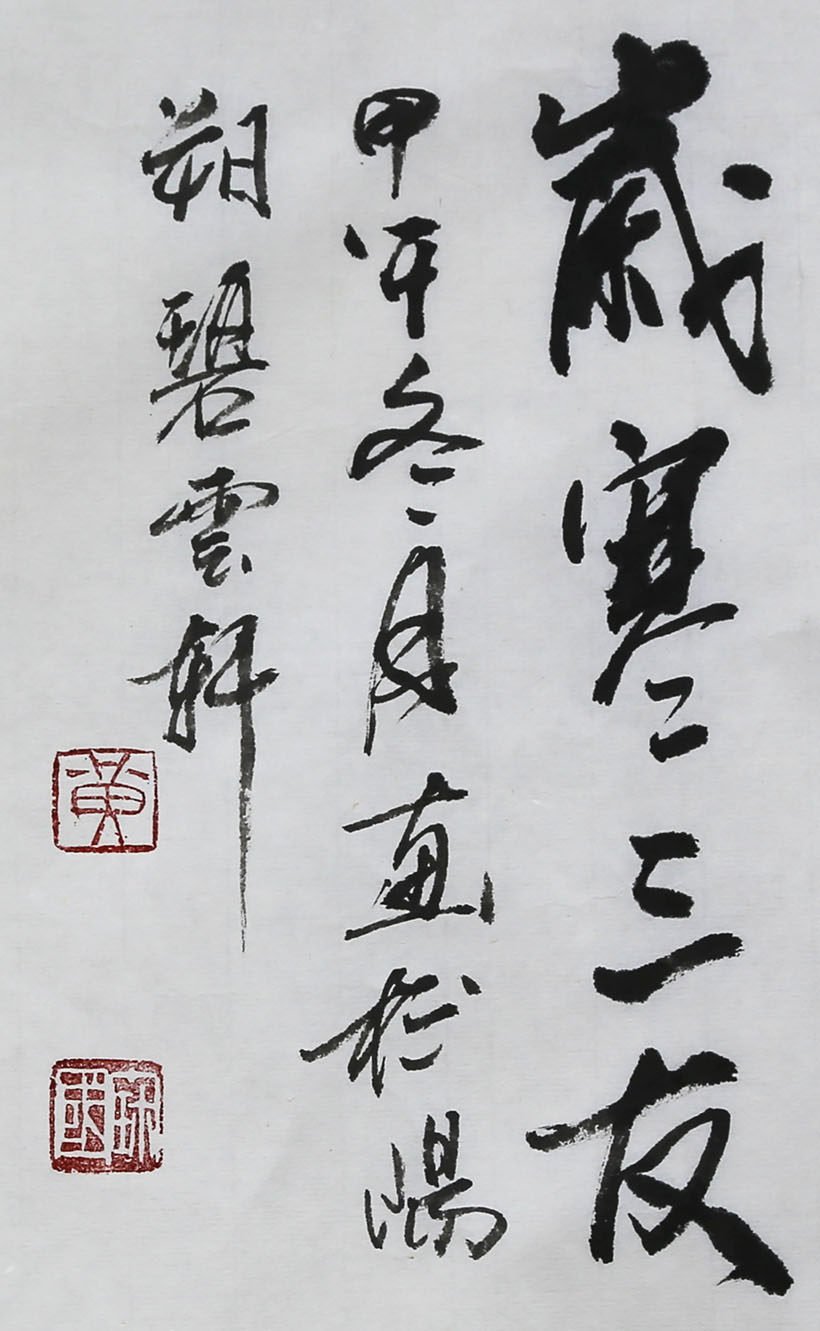 歲寒三友
甲午冬月畫於陽
朔碧雲軒
黄